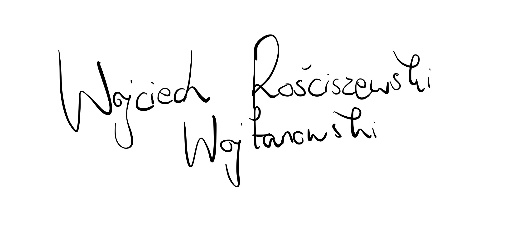 Wojciech Rościszewski
Wojtanowski